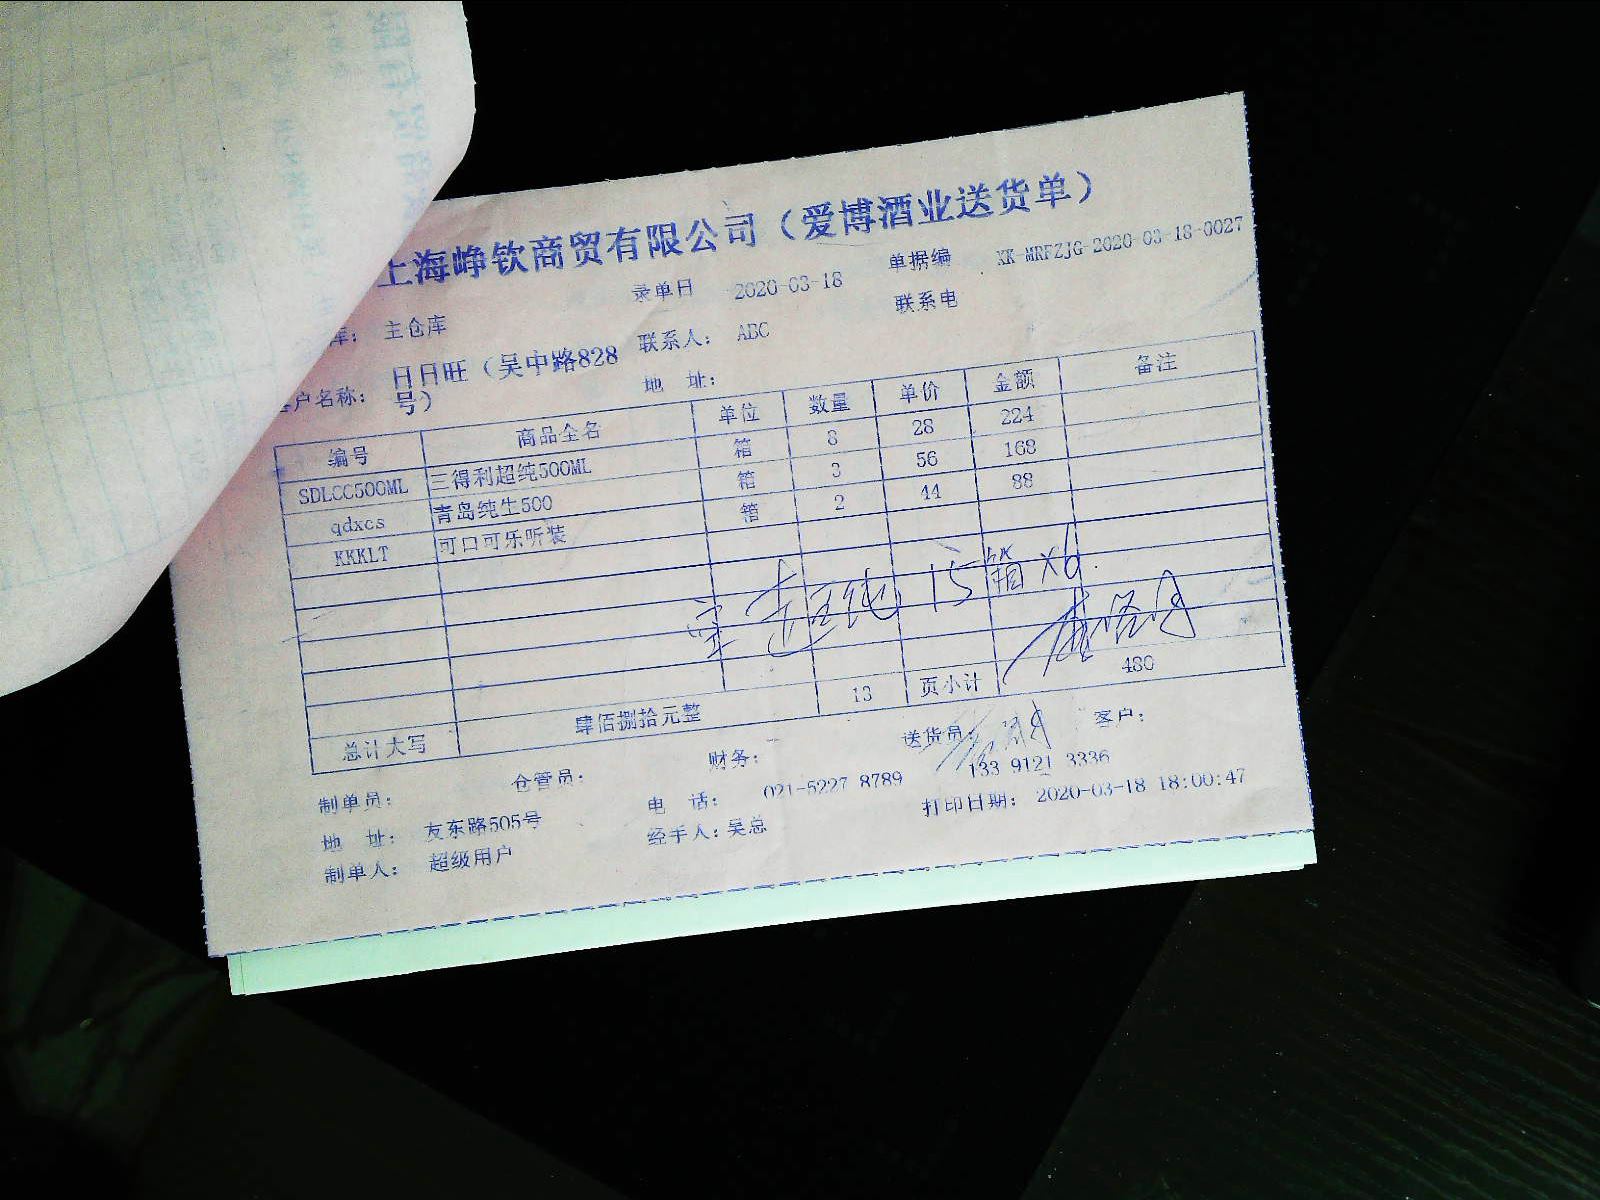 上海峥钦商贸有限公司（爱博酒业送货单）
录单日 2020-03-18 单据编 XK-MRFZJG-2020-03-18-0027
库： 主仓库 联系人： ABC 联系电
客户名称： 日日旺（吴中路828号） 地 址：
编号 商品全名 单位 数量 单价 金额 备注
SDLCC500ML 三得利超纯500ML 箱 8 28 224
qdxcs 青岛纯生500 箱 3 56 168
KKKLT 可口可乐听装 箱 2 44 88
超纯 15箱 x6
总计大写 肆佰捌拾元整 13 页小计 480
制单员： 仓管员： 财务： 送货员： 客户：
地 址： 友东路505号 电 话： 021-5227 8789 133 9121 3336
制单人： 超级用户 经手人：吴总 打印日期： 2020-03-18 18:00:47